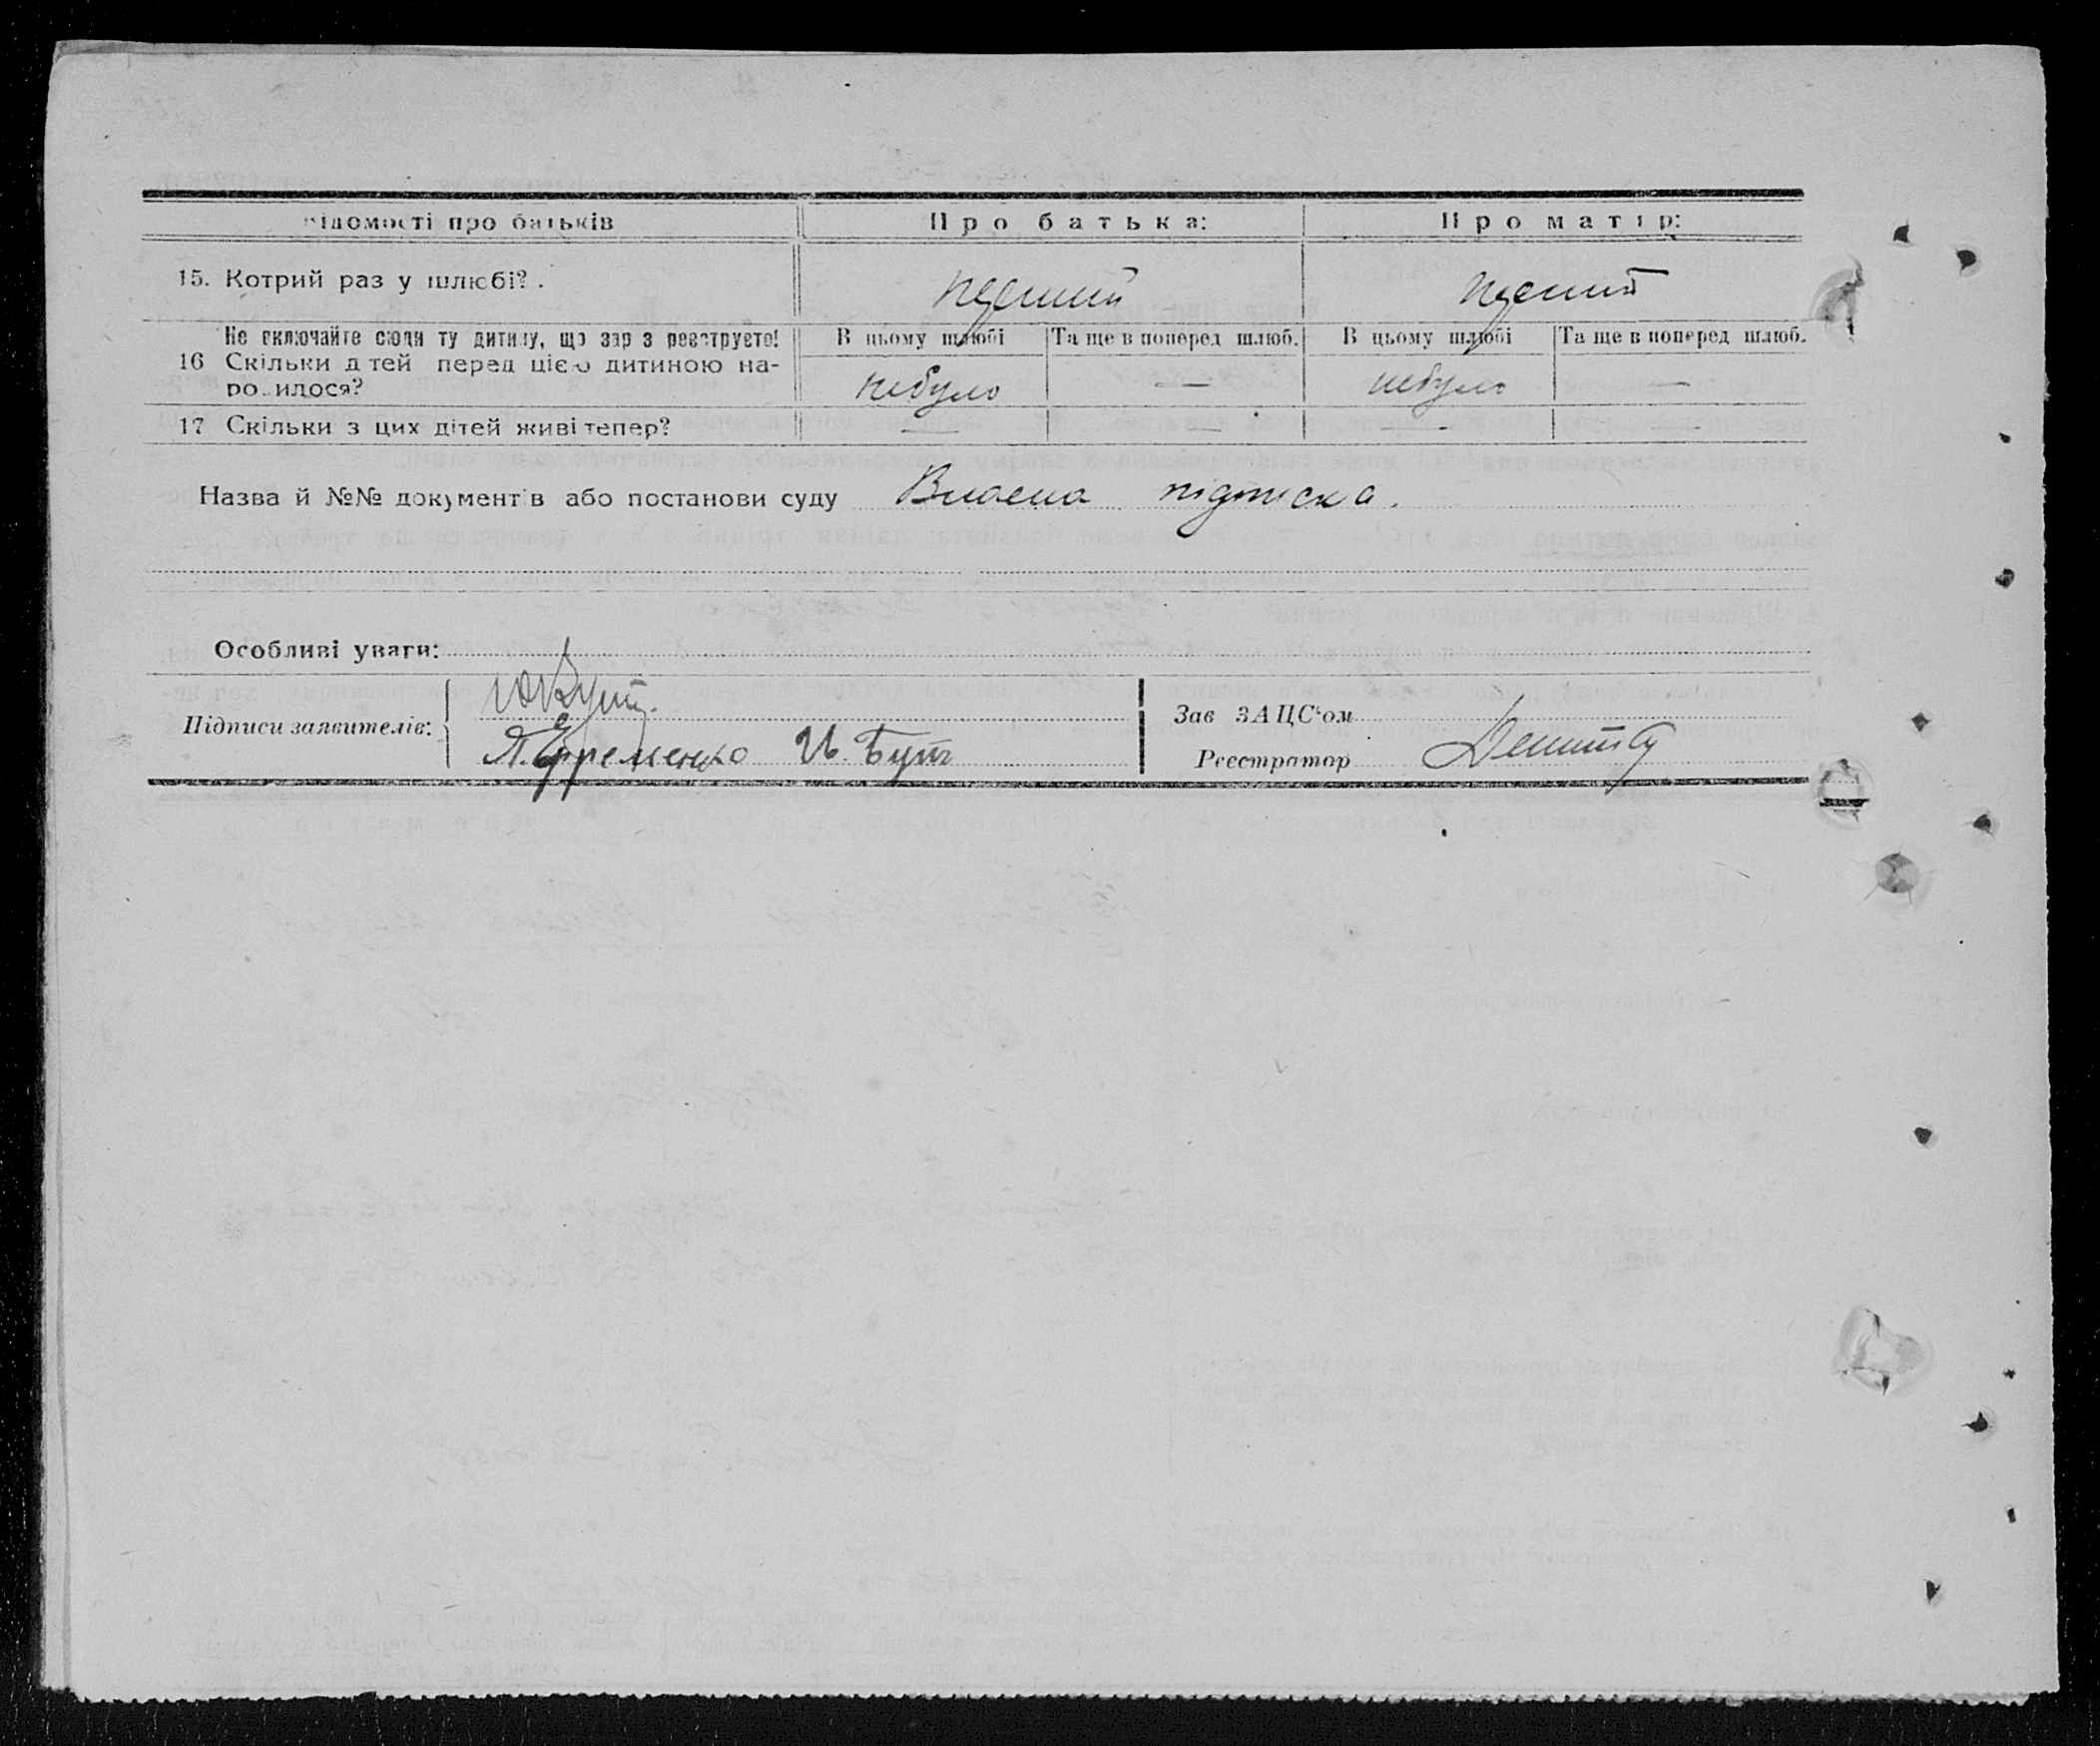 відомості про батьків Про батька: Про матір:
15. Котрий раз у шлюбі? . перший перший
Не включайте сюди ту дитину, що зараз реєструєте! В цьому шлюбі Та ще в поперед шлюб. В цьому шлюбі Та ще в поперед шлюб.
16 Скільки дітей перед цією дитиною на-
родилося? небуло — небуло —
17 Скільки з цих дітей живі тепер? — — — —
Назва й №№ документів або постанови суду Власна підписка.
Особливі уваги:
Підписи заявителів: Зав ЗАЦС'ом
Я. Єфременко И. Бутъ Реєстратор